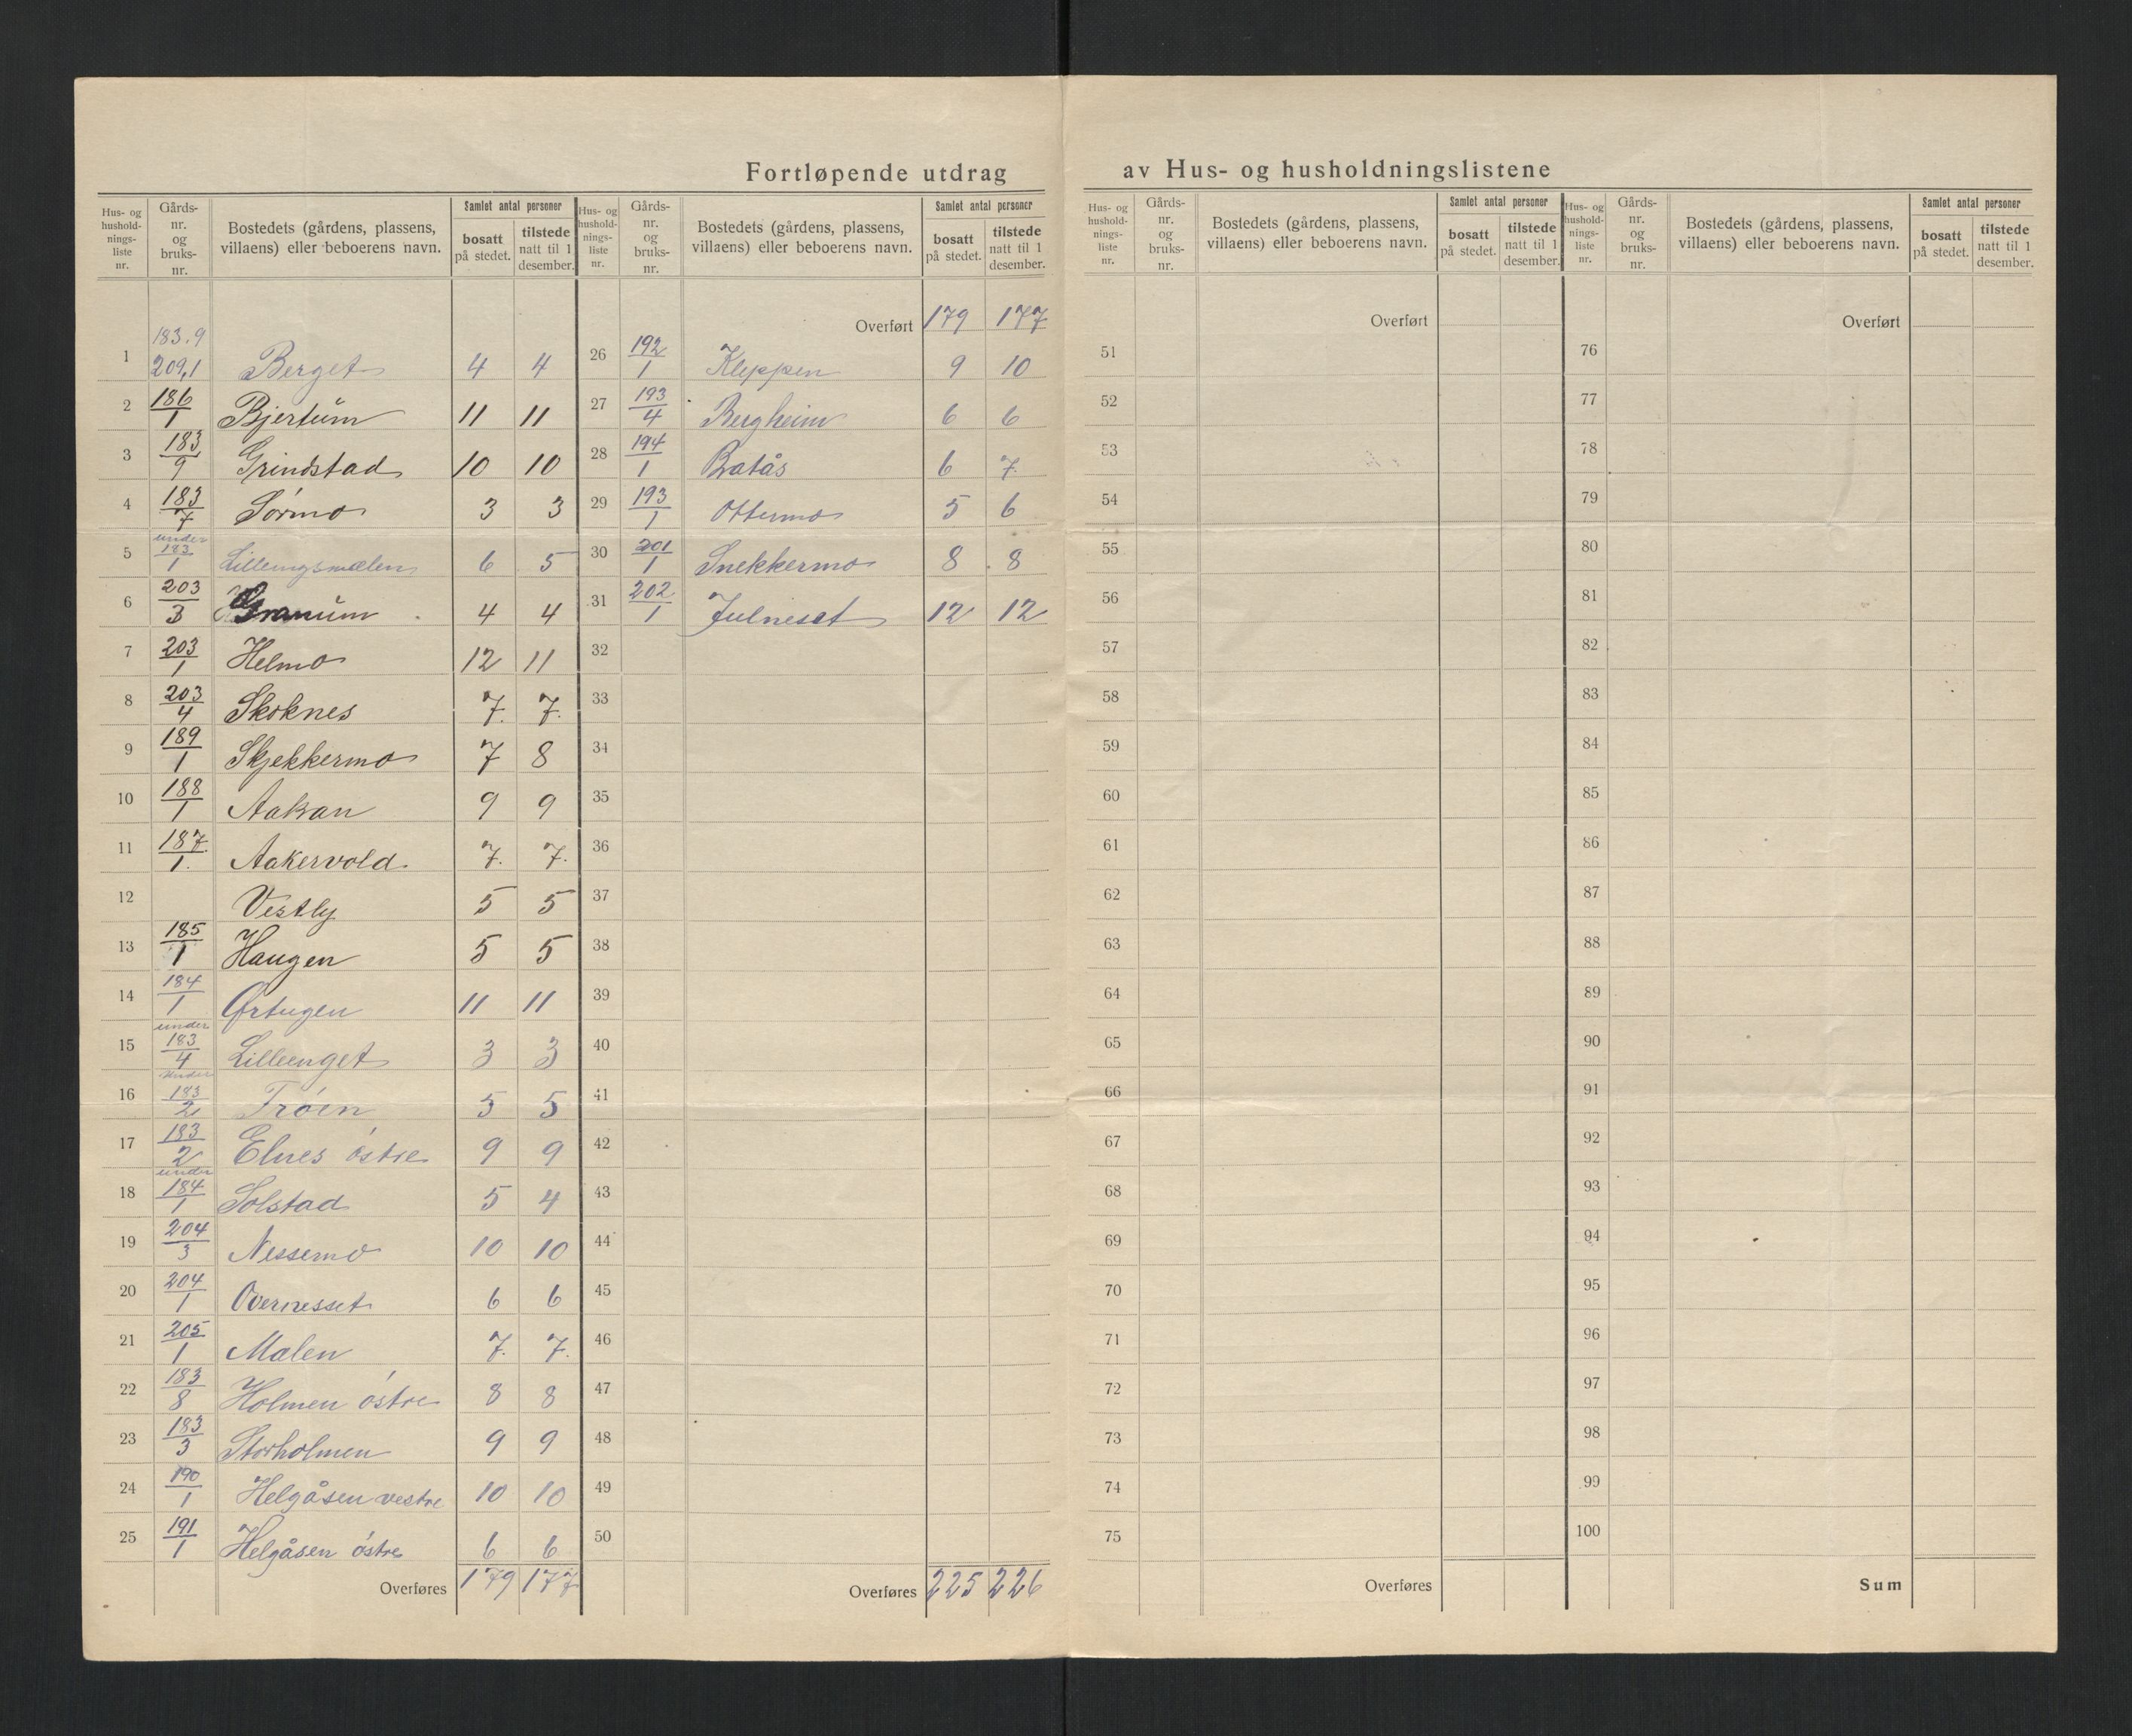 Fortløpende utdrag av Hus- og husholdningslistene
Hus- og hushold-nings-liste nr. | Gårds-nr. og bruks-nr. | Bostedets (gårdens, plassens, villaens) eller beboerens navn. | Samlet antal personer | bosatt på stedet. | tilstede natt til 1 desember.
1 183.9 209,1 Berget 4 4
2 186/1 Bjertūm 11 11
3 183/9 Grindstad 10 10
4 183/7 Sørmo 3 3
5 under 183/1 Lillengsmælen 6 5
6 203/3 Granūm 4 4
7 203/1 Helmo 12 11
8 203/4 Skoknes 7. 7.
9 189/1 Skjekkermo 7 8
10 188/1 Aakran 9 9
11 187/1. Aakervold. 7. 7.
12 Vestly 5 5
13 185/1 Haugen 5 5
14 184/1 Ørtugen 11 11
15 under 183/4 Lilleenget 3 3
16 under 183/2 Trøen 5 5
17 183/2 Elnes østre 9 9
18 under 184/1 Solstad 5 4
19 204/3 Nessemo 10 10
20 204/1 Overnesset 6 6
21 205/1 Malen 7. 7.
22 183/8 Holmen østre 8 8
23 183/3 Storholmen 9 9
24 190/1 Helgåsen vestre 10 10
25 191/1 Helgåsen østre 6 6
Overføres 179 177
Hus- og hushold-nings-liste nr. | Gårds-nr. og bruks-nr. | Bostedets (gårdens, plassens, villaens) eller beboerens navn. | Samlet antal personer | bosatt på stedet. | tilstede natt til 1 desember.
Overført 179 177
26 192/1 Kleppen 9 10
27 193/4 Bergheim 6 6
28 194/1 Bratås 6 7.
29 193/1 Ottermo 5 6
30 201/1 Snekkermo 8 8
31 202/1 Julneset 12 12
32
33
34
35
36
37
38
39
40
41
42
43
44
45
46
47
48
49
50
Overføres 225 226
Hus- og hushold-nings-liste nr. | Gårds-nr. og bruks-nr. | Bostedets (gårdens, plassens, villaens) eller beboerens navn. | Samlet antal personer | bosatt på stedet. | tilstede natt til 1 desember.
Overført
51
52
53
54
55
56
57
58
59
60
61
62
63
64
65
66
67
68
69
70
71
72
73
74
75
Overføres
Hus- og hushold-nings-liste nr. | Gårds-nr. og bruks-nr. | Bostedets (gårdens, plassens, villaens) eller beboerens navn. | Samlet antal personer | bosatt på stedet. | tilstede natt til 1 desember.
Overført
76
77
78
79
80
81
82
83
84
85
86
87
88
89
90
91
92
93
94
95
96
97
98
99
100
Sum